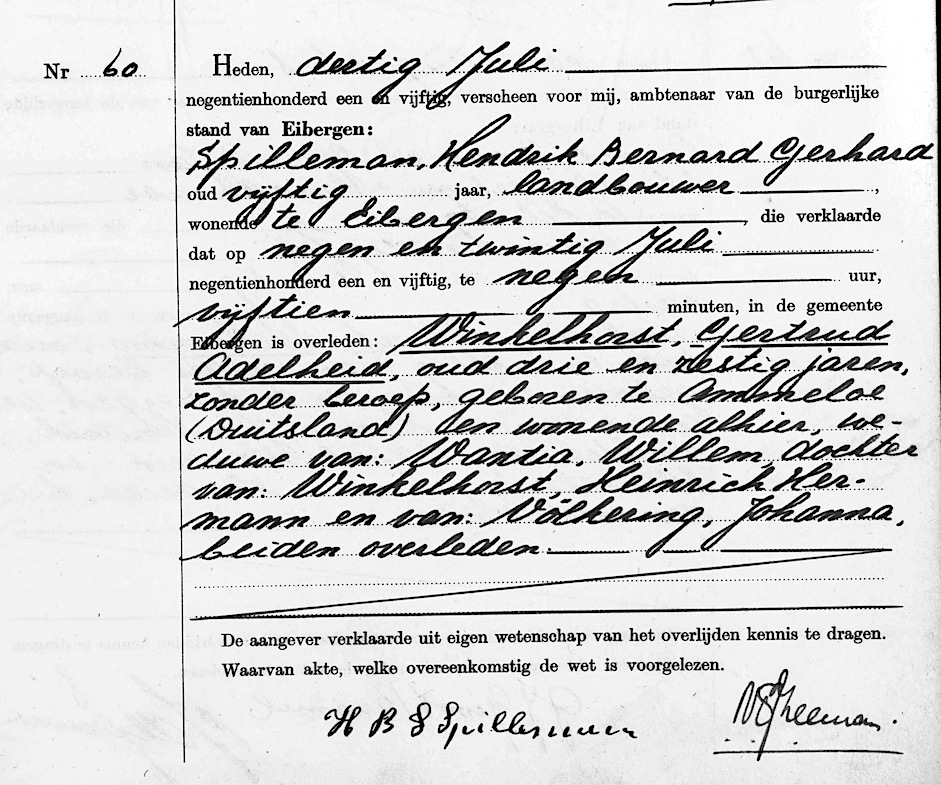 Nr 60
Heden, dertig Juli
negentienhonderd een en vijftig, verscheen voor mij, ambtenaar van de burgerlijke
stand van Eibergen:
Spilleman, Hendrik Bernard Gerhard
oud vijftig jaar, landbouwer,
wonende te Eibergen, die verklaarde
dat op negen en twintig Juli
negentienhonderd een en vijftig, te negen uur,
vijftien minuten, in de gemeente
Eibergen is overleden: Winkelhorst, Gertrud
Adelheid, oud drie en zestig jaren,
zonder beroep, geboren te Ammeloe
(Duitsland) en wonende alhier, we-
duwe van: Wantia, Willem, dochter
van: Winkelhorst, Heinrich Her-
mann en van: Völkering, Johanna,
beiden overleden.
De aangever verklaarde uit eigen wetenschap van het overlijden kennis te dragen.
Waarvan akte, welke overeenkomstig de wet is voorgelezen.
H B G Spilleman